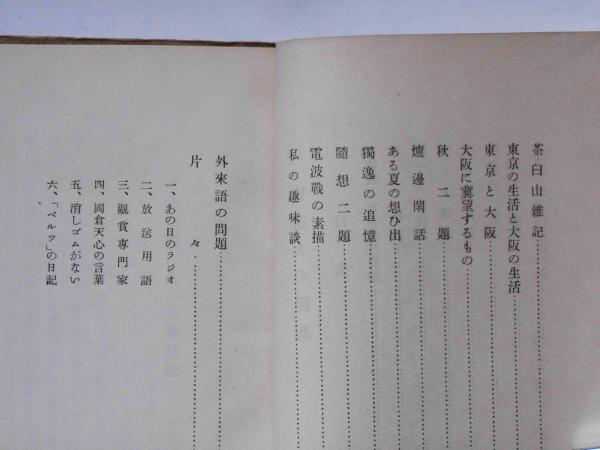 茶臼山雑記
東京の生活と大阪の生活
東京と大阪
大阪に冀望するもの
秋二題
爐邊閑話
ある夏の想ひ出
獨逸の追憶
隨想二題
電波戰の素描
私の趣味談
外來語の問題
片々
一、あの日のラジオ
二、放送用語
三、觀賞專門家
四、岡倉天心の言葉
五、消しゴムがない
六、「ベルツ」の日記